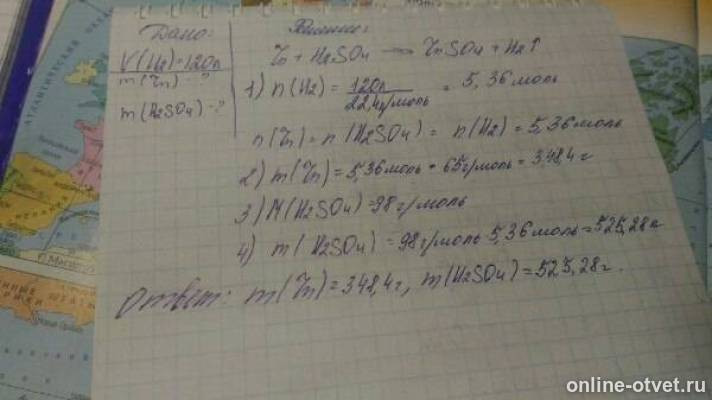 Дано:
V(H2)=120л
m(Zn)-?
m(H2SO4)-?
Решение:
Zn + H2SO4 → ZnSO4 + H2↑
1) n(H2) = 120л / 22,4л/моль = 5,36 моль
n(Zn) = n(H2SO4) = n(H2) = 5,36 моль
2) m(Zn) = 5,36 моль * 65г/моль = 348,4 г
3) M(H2SO4) = 98 г/моль
4) m(H2SO4) = 98г/моль 5,36 моль = 525,28г
Ответ: m(Zn) = 348,4г, m(H2SO4) = 525,28г.
online-otvet.ru